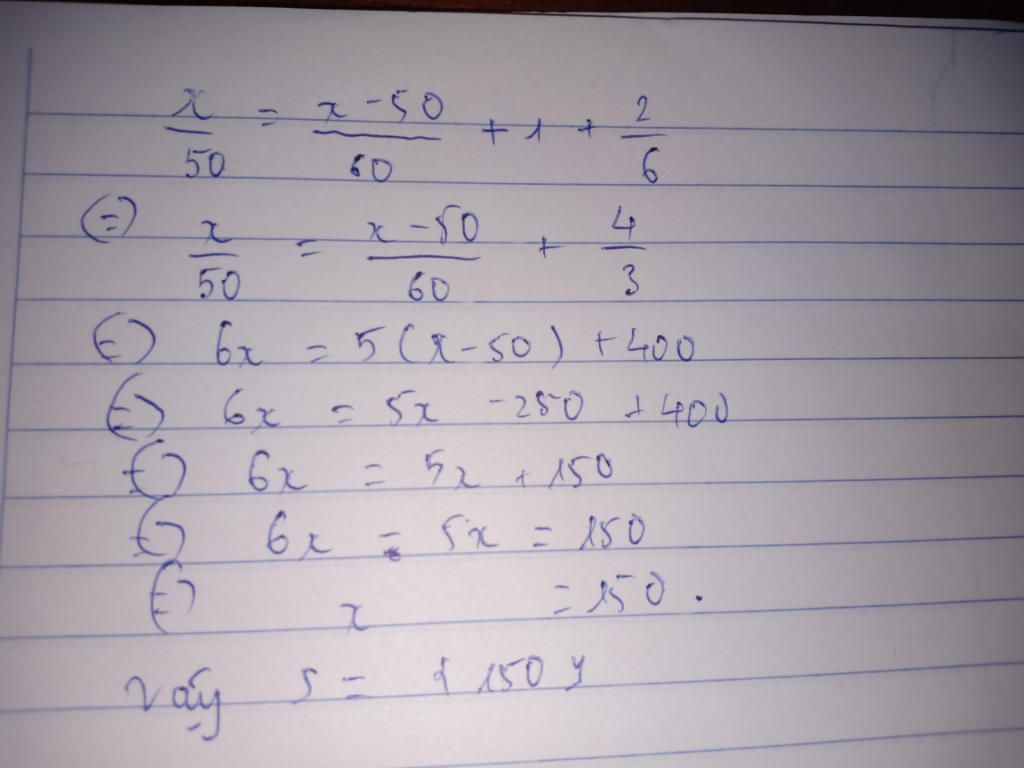 x/50 = x-50/60 + 1 + 2/6
(=) x/50 = x-50/60 + 4/3
(=) 6x = 5(x-50) +400
(=) 6x = 5x -250 +400
(=) 6x = 5x + 150
(=) 6x - 5x = 150
(=) x = 150.
Vậy S = {150}